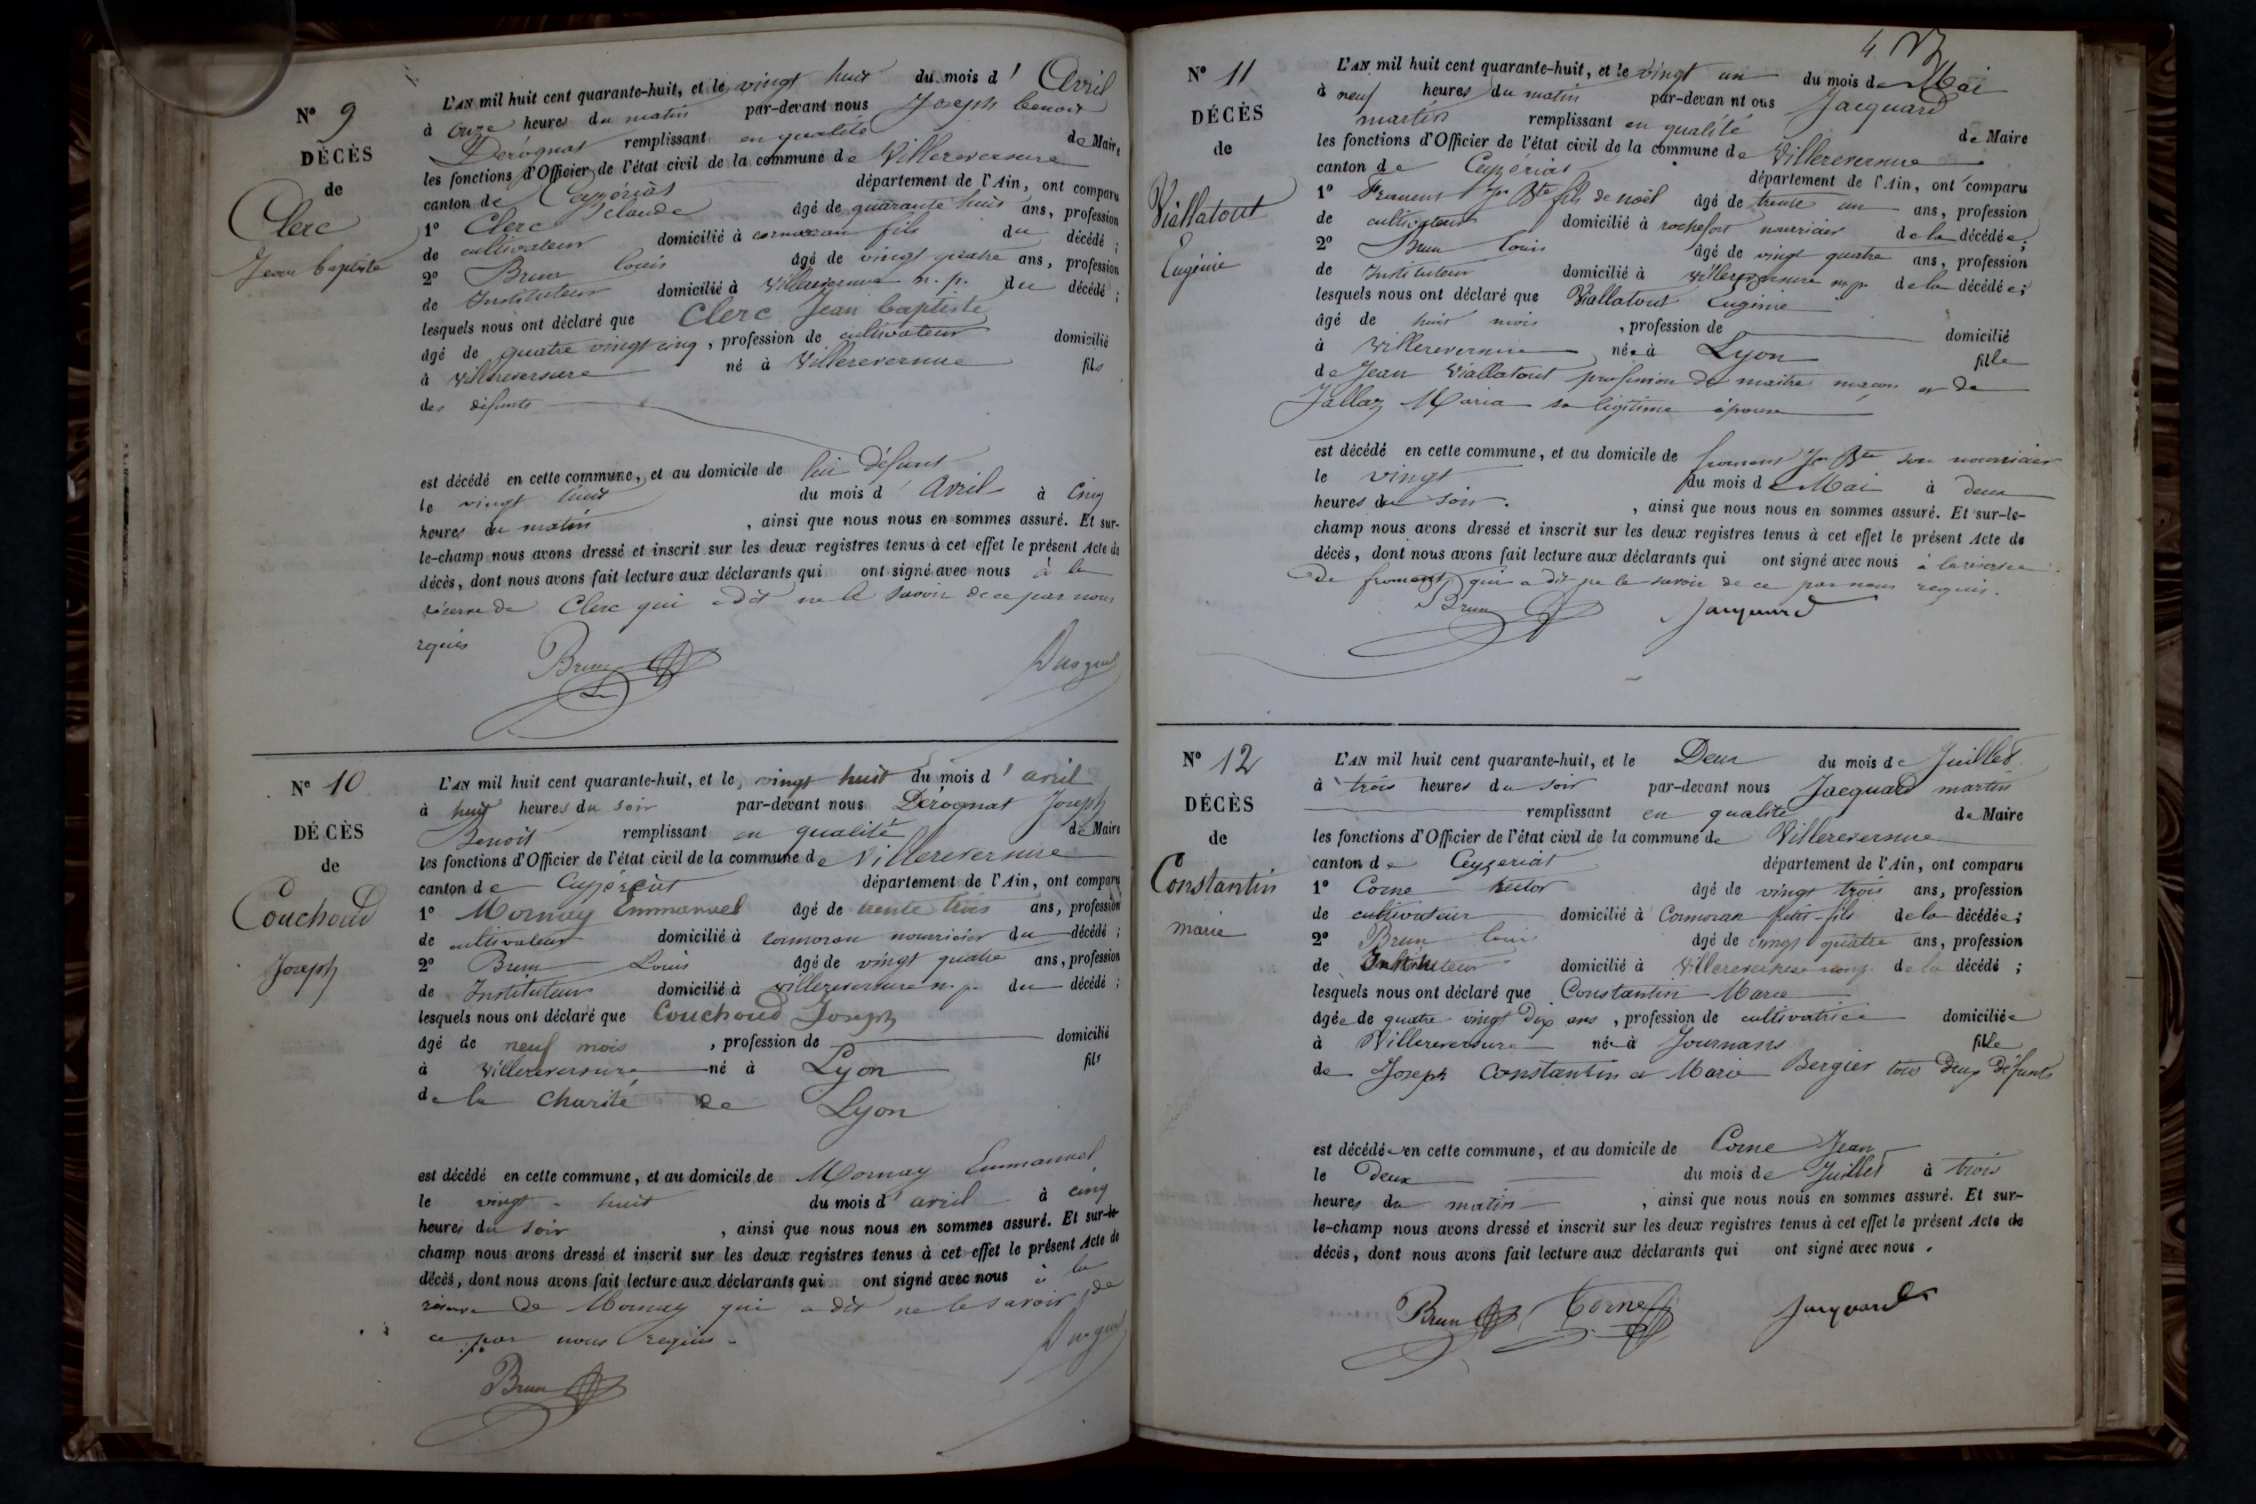 N° 9
DÉCÈS
de
Clerc
Jean baptiste
L'AN mil huit cent quarante-huit, et le vingt huit du mois d' Avril
à onze heures du matin par-devant nous Joseph benoit
Dérognat remplissant en qualité de Maire
les fonctions d'Officier de l'état civil de la commune de Villereversure
canton de Ceyzériat département de l'Ain, ont comparu
1° Clerc Claude âgé de quarante huit ans, profession
de cultivateur domicilié à cormoran fils du décédé ;
2° Brun louis âgé de vingt quatre ans, profession
de Instituteur domicilié à Villereversure n. p. du décédé ;
lesquels nous ont déclaré que Clerc Jean baptiste
âgé de quatre vingt cinq , profession de cultivateur domicilié
à Villereversure né à Villereversure fils
des défunts
est décédé en cette commune, et au domicile de lui défunt
le vingt huit du mois d' Avril à Cinq
heures du matin , ainsi que nous nous en sommes assuré. Et sur-
le-champ nous avons dressé et inscrit sur les deux registres tenus à cet effet le présent Acte de
décès, dont nous avons fait lecture aux déclarants qui ont signé avec nous à la
réserve de Clerc qui a dit ne le savoir de ce par nous
requis
Brun
N° 10
DÉCÈS
de
Couchoud
Joseph
L'AN mil huit cent quarante-huit, et le vingt huit du mois d' avril
à huit heures du soir par-devant nous Dérognat Joseph
Benoit remplissant en qualité de Maire
les fonctions d'Officier de l'état civil de la commune de Villereversure
canton de Ceyzériat département de l'Ain, ont comparu
1° Mornay Emmanuel âgé de trente trois ans, profession
de cultivateur domicilié à cormoran nourricier du décédé ;
2° Brun Louis âgé de vingt quatre ans, profession
de Instituteur domicilié à Villereversure n. p. du décédé ;
lesquels nous ont déclaré que Couchoud Joseph
âgé de neuf mois , profession de domicilié
à Villereversure né à Lyon fils
de la Charité de Lyon
est décédé en cette commune, et au domicile de Mornay Emmanuel
le vingt - huit du mois d' avril à cinq
heures du soir , ainsi que nous nous en sommes assuré. Et sur-le-
champ nous avons dressé et inscrit sur les deux registres tenus à cet effet le présent Acte de
décès, dont nous avons fait lecture aux déclarants qui ont signé avec nous à la
réserve de Mornay qui a dit ne le savoir de
ce par nous requis -
Brun
4
N° 11
DÉCÈS
de
Viallatout
Eugénie
L'AN mil huit cent quarante-huit, et le vingt un du mois de Mai
à neuf heures du matin par-devan nt ous Jacquard
martin remplissant en qualité de Maire
les fonctions d'Officier de l'état civil de la commune de Villereversure
canton de Ceyzériat département de l'Ain, ont comparu
1° Froment Jn Bte fils de noël âgé de trente un ans, profession
de cultivateur domicilié à rochefort nourricier de la décédée ;
2° Brun louis âgé de vingt quatre ans, profession
de Instituteur domicilié à Villereversure n. p. de la décédée ;
lesquels nous ont déclaré que Viallatout Eugénie
âgé de huit mois , profession de domicilié
à Villereversure née à Lyon fille
de Jean Viallatout profession de maitre maçon et de
Jallaz Maria sa légitime épouse
est décédé en cette commune, et au domicile de froment Jn Bte son nourricier
le vingt du mois de Mai à deux
heures du soir. , ainsi que nous nous en sommes assuré. Et sur-le-
champ nous avons dressé et inscrit sur les deux registres tenus à cet effet le présent Acte de
décès, dont nous avons fait lecture aux déclarants qui ont signé avec nous à la réserve
de froment qui a dit ne le savoir de ce par nous requis.
Brun Jacquard
N° 12
DÉCÈS
de
Constantin
marie
L'AN mil huit cent quarante-huit, et le Deux du mois de Juillet
à trois heures du soir par-devant nous Jacquard martin
remplissant en qualité de Maire
les fonctions d'Officier de l'état civil de la commune de Villereversure
canton de Ceyzeriat département de l'Ain, ont comparu
1° Corne hector âgé de vingt trois ans, profession
de cultivateur domicilié à Cormoran petit-fils de la décédée ;
2° Brun louis âgé de vingt quatre ans, profession
de Instituteur domicilié à Villereversure de la décédé ;
lesquels nous ont déclaré que Constantin Marie
âgée de quatre vingt dix ans , profession de cultivatrice domiciliée
à Villereversure née à Journans fille
de Joseph Constantin et Marie Bergier tous deux défunts
est décédée en cette commune, et au domicile de Corne Jean
le Deux du mois de Juillet à trois
heures du matin , ainsi que nous nous en sommes assuré. Et sur-
le-champ nous avons dressé et inscrit sur les deux registres tenus à cet effet le présent Acte de
décès, dont nous avons fait lecture aux déclarants qui ont signé avec nous .
Brun Corne Jacquard